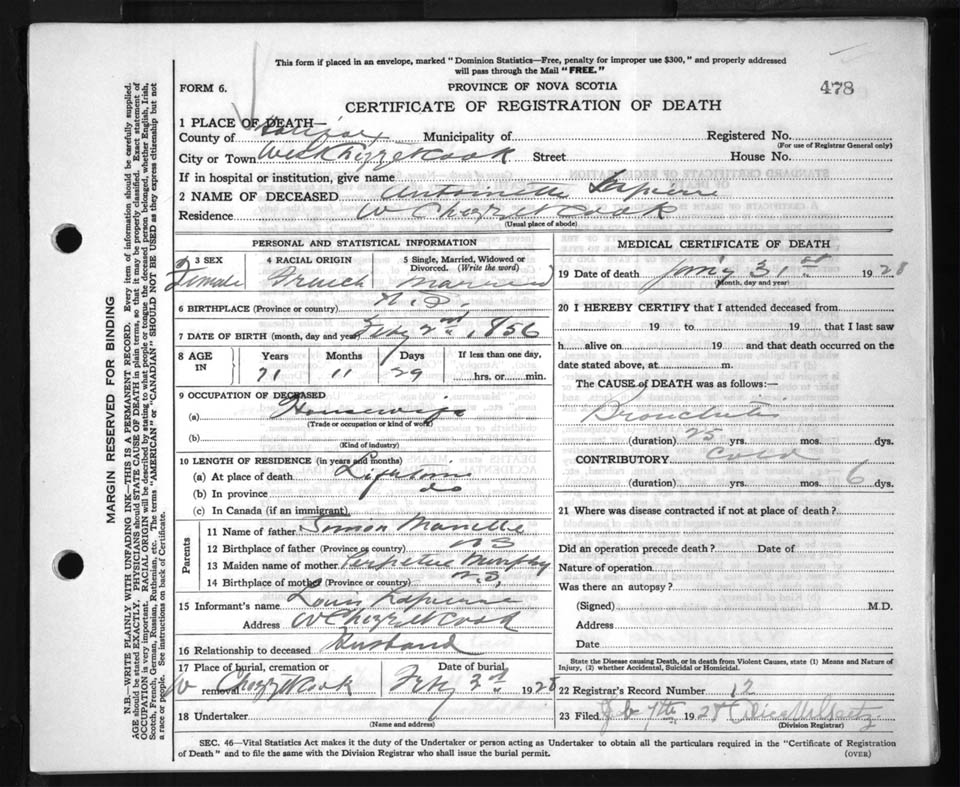 This form if placed in an envelope, marked "Dominion Statistics—Free, penalty for improper use $300," and properly addressed
will pass through the Mail "FREE."
FORM 6.
PROVINCE OF NOVA SCOTIA
478
CERTIFICATE OF REGISTRATION OF DEATH
1 PLACE OF DEATH—
County of Halifax Municipality of Registered No.
(For use of Registrar General only)
City or Town West Chezzetcook Street House No.
If in hospital or institution, give name
2 NAME OF DECEASED Antoinette Lapierre
Residence W Chezzetcook
(Usual place of abode)
PERSONAL AND STATISTICAL INFORMATION
3 SEX 4 RACIAL ORIGIN 5 Single, Married, Widowed or Divorced. (Write the word)
Female French Married
6 BIRTHPLACE (Province or country) N.S.
7 DATE OF BIRTH (month, day and year) Feby 2nd 1856
8 AGE IN Years Months Days If less than one day,
71 11 29 hrs. or min.
9 OCCUPATION OF DECEASED
(a) Housewife
(Trade or occupation or kind of work)
(b)
(Kind of industry)
10 LENGTH OF RESIDENCE (in years and months)
(a) At place of death Lifetime
(b) In province do
(c) In Canada (if an immigrant)
Parents
11 Name of father Simon
12 Birthplace of father (Province or country) N S
13 Maiden name of mother Perpetue Murphy
14 Birthplace of mother (Province or country) N.S,
15 Informant's name Louis Lapierre
Address W Chezzetcook
16 Relationship to deceased Husband
17 Place of burial, cremation or removal Date of burial
W Chezzetcook Feby 3rd 1928
18 Undertaker
(Name and address)
MEDICAL CERTIFICATE OF DEATH
19 Date of death Jany 31st 1928
(Month, day and year)
20 I HEREBY CERTIFY that I attended deceased from
19 to 19 that I last saw
h alive on 19 and that death occurred on the
date stated above, at m.
The CAUSE of DEATH was as follows:—
Bronchitis
(duration) 25 yrs. mos. dys.
CONTRIBUTORY Cold
(duration) yrs. mos. 6 dys.
21 Where was disease contracted if not at place of death?
Did an operation precede death? Date of
Nature of operation
Was there an autopsy?
(Signed) M.D.
Address
Date
State the Disease causing Death, or in death from Violent Causes, state (1) Means and Nature of
Injury, (2) whether Accidental, Suicidal or Homicidal.
22 Registrar's Record Number 12
23 Filed Feb 7th 1928
(Division Registrar)
SEC. 46—Vital Statistics Act makes it the duty of the Undertaker or person acting as Undertaker to obtain all the particulars required in the "Certificate of Registration
of Death" and to file the same with the Division Registrar who shall issue the burial permit.
(OVER)
MARGIN RESERVED FOR BINDING
N.B.—WRITE PLAINLY WITH UNFADING INK—THIS IS A PERMANENT RECORD. Every item of information should be carefully supplied.
AGE should be stated EXACTLY. PHYSICIANS should STATE CAUSE OF DEATH in plain terms, so that it may be properly classified. Exact statement of
OCCUPATION is very important. RACIAL ORIGIN will be described by stating to what people or tongue the deceased person belonged, whether English, Irish,
Scotch, French, German, Russian, Ruthenian, etc. The terms "AMERICAN" or "CANADIAN" SHOULD NOT BE USED as they express citizenship but not
a race or people. See instructions on back of Certificate.